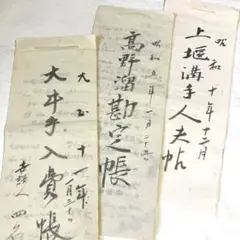 昭和十年十二月
上堰溝手人夫帖
昭和五年一月二十五日
高野溜勘定帳
大正十一年
一月三十日
大井手入費帳